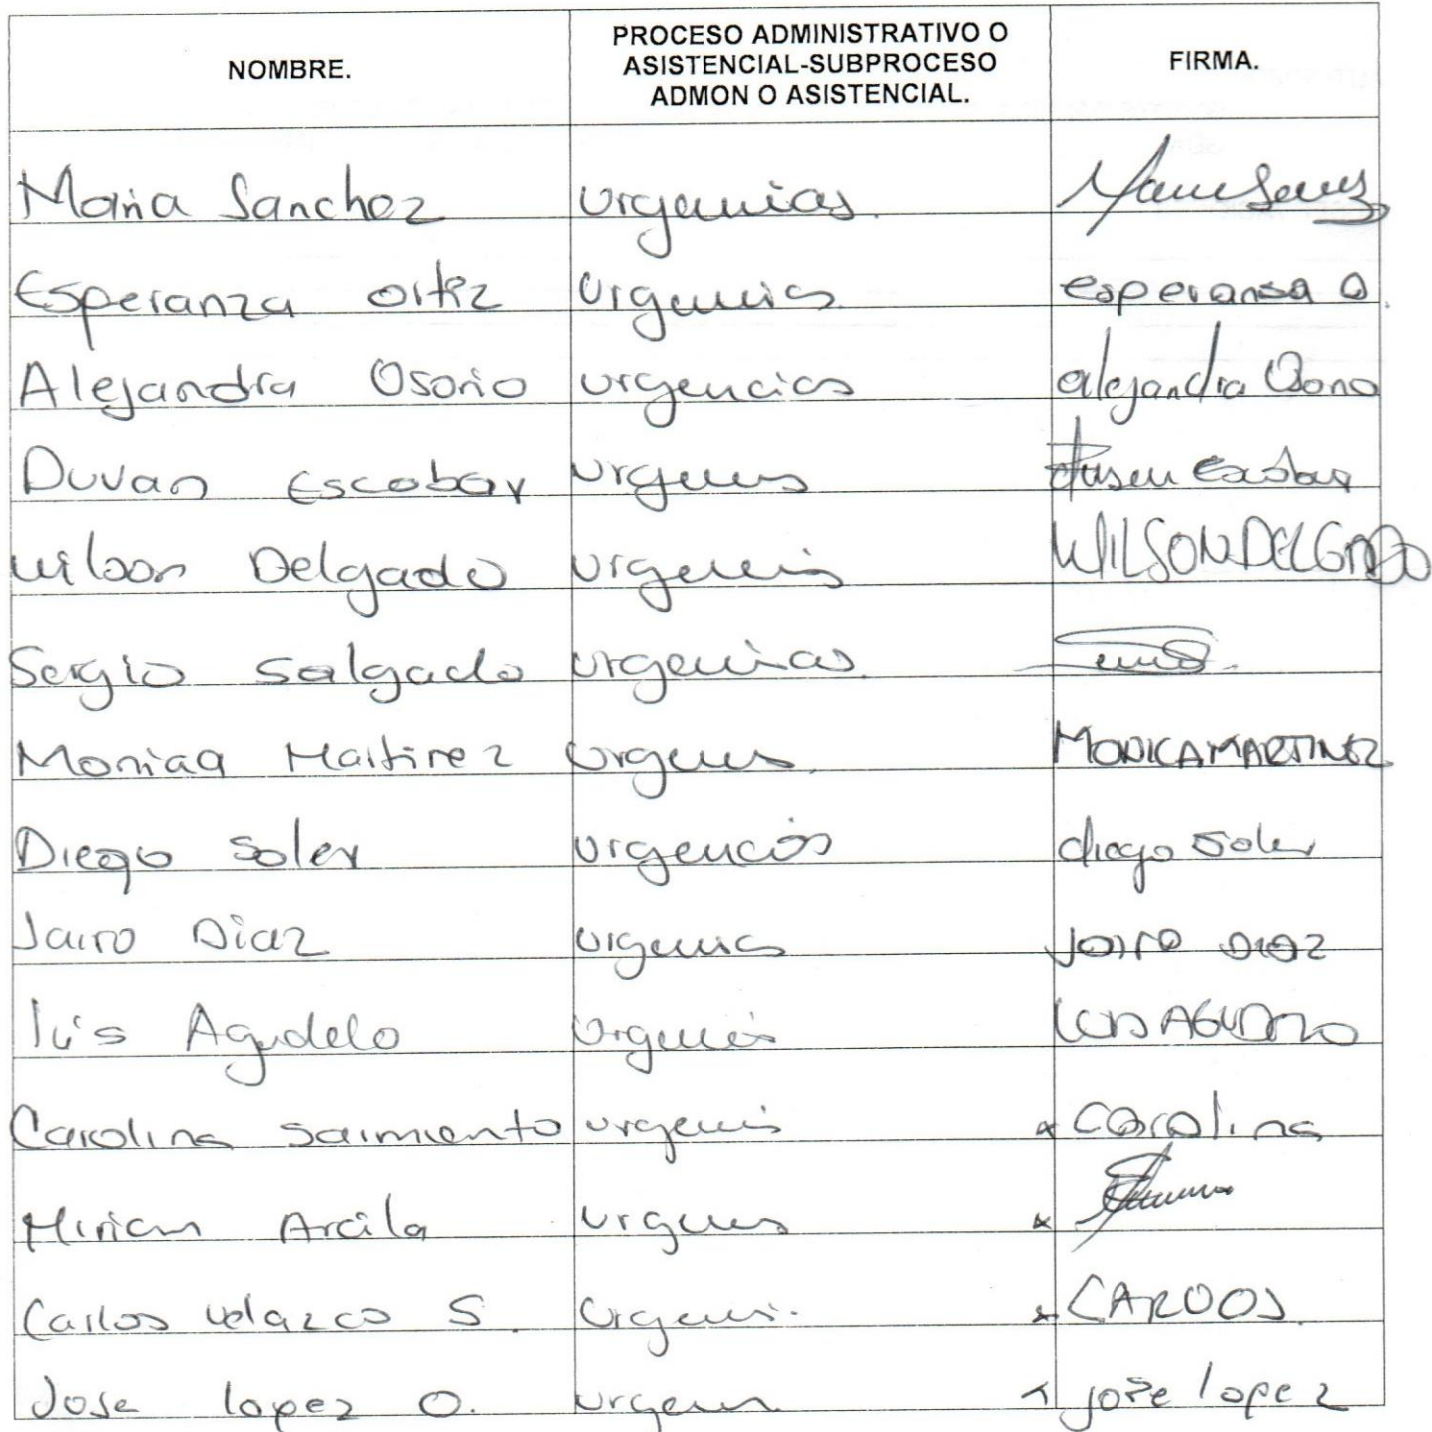 NOMBRE.
PROCESO ADMINISTRATIVO O
ASISTENCIAL-SUBPROCESO
ADMON O ASISTENCIAL.
FIRMA.
Maria Sanchez urgencias.
Esperanza Ortiz Urgencias esperansa O.
Alejandra Osorio urgencias alejandra Osorio
Duvan Escobar urgencias Escobar
Wilson Delgado urgencias WILSON DELGADO
Sergio Salgado urgencias.
Monica Martinez urgencias MONICA MARTINEZ
Diego Soler urgencias diego Soler
Jairo Diaz urgencias JAIRO DIAZ
luis Agudelo Urgencias LUIS AGUDELO
Carolina Sarmiento urgencias x Carolina
Miriam Arcila urgencias x
Carlos Velazco S. Urgenci. x CARLOS.
Jose lopez O. urgencias jose lopez